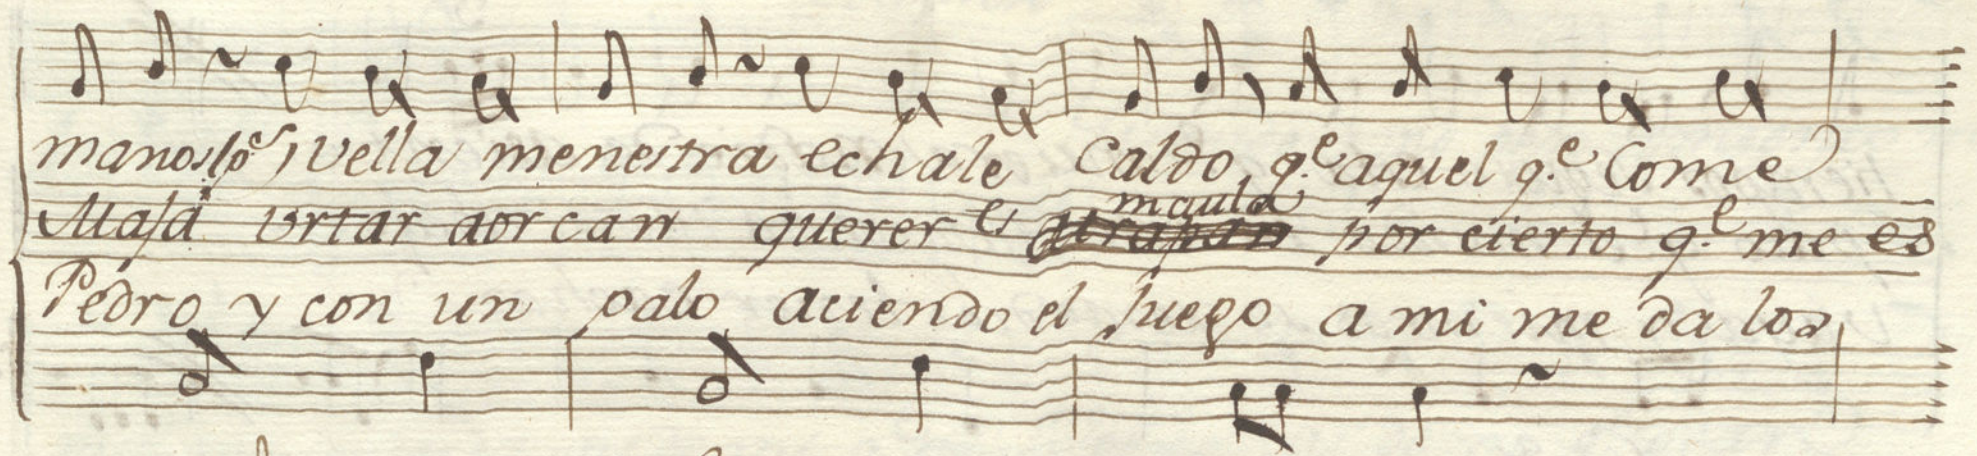 manos vella menestra echale Caldo, q.e aquel q.e Come
Maja urtar aorcan querer es maula por cierto q.e me es
Pedro y con un palo aciendo el juego a mi me da los